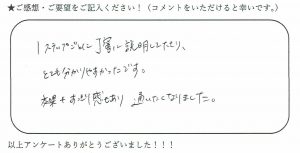 ★ご感想・ご要望をご記入ください！（コメントをいただけると幸いです。）
1ステップごとに丁寧に説明してくださり、
とても分かりやすかったです。
効果もすぐ感じもあり 通いたくなりました。
以上アンケートありがとうございました！！！